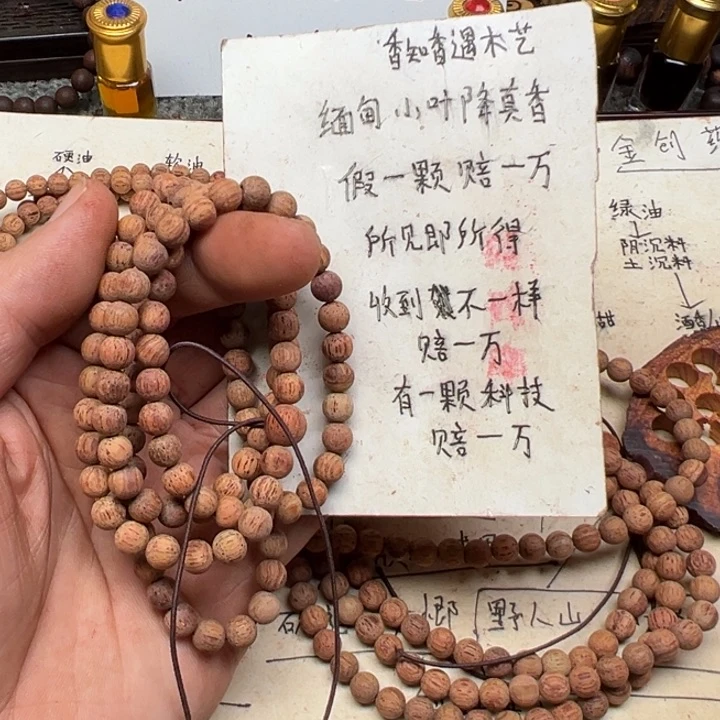 香知香遇木艺
缅甸小叶降真香
假一颗赔一万
所见即所得
收到不一样
赔一万
有一颗科技
赔一万
硬油 软油
金创
绿油
阴沉料
土沉料
甜
野人山